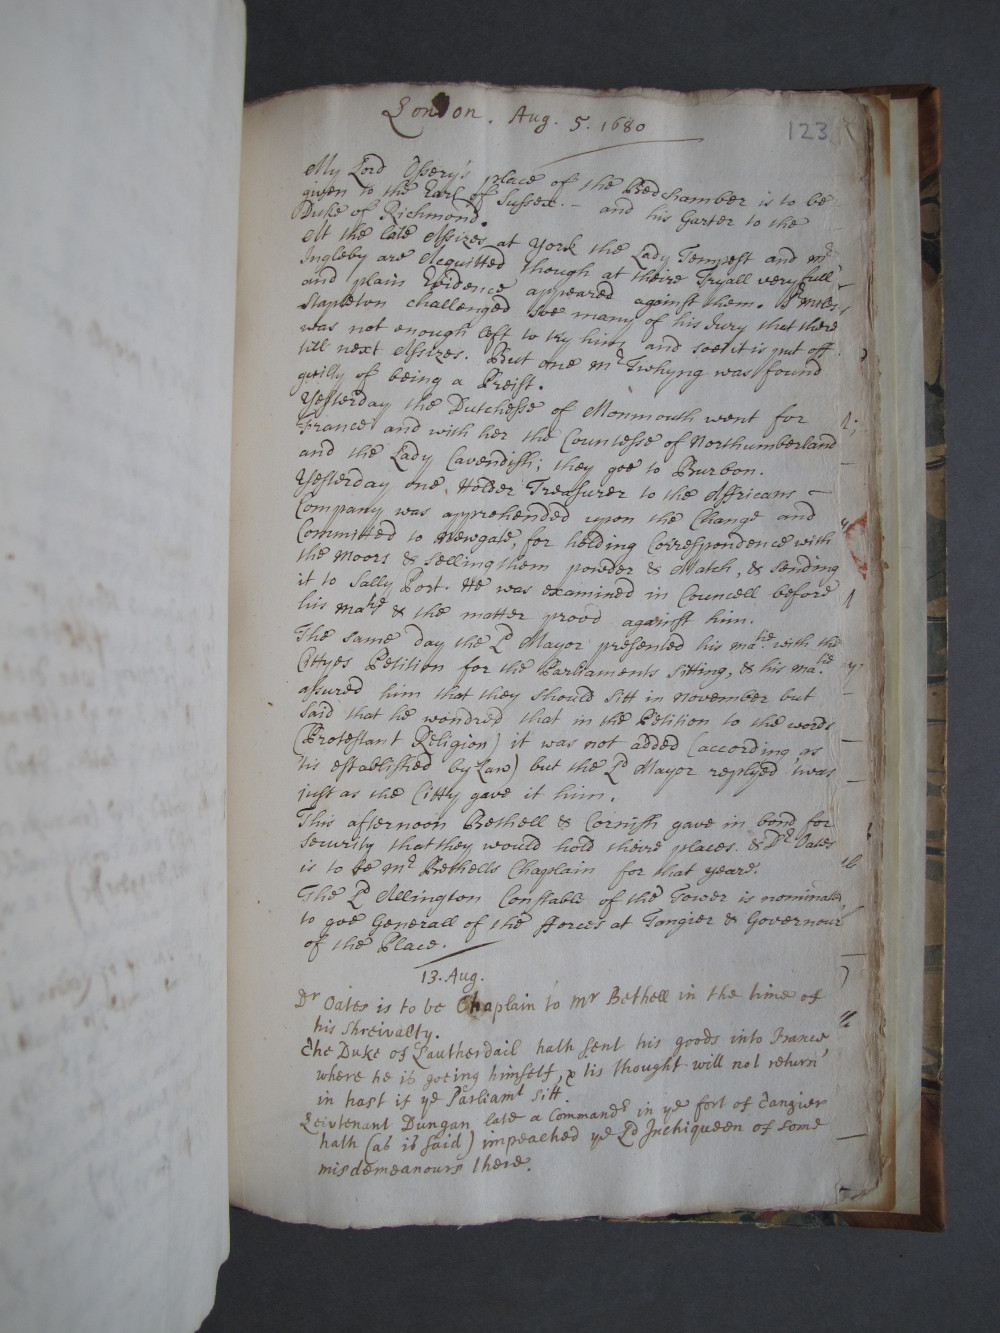 London. Aug. 5. 1680
123
My Lord Ossery's place of the Bedchamber is to be
given to the Earl of Sussex. – and his Garter to the
Duke of Richmond.
At the late Assizes at York the Lady Tempest and mr
Ingleby are Acquitted though at theire Tryall very full
and plain Evidence appeared against them. Sr miles
Stapleton challenged soe many of his Jury that there
was not enough left to try him, and soe it is put off
till next Assizes. But one mr Twhyng was found
guilty of being a Preist.
Yesterday the Dutchesse of Monmouth went for
France and with her the Countesse of Northumberland
and the Lady Cavendish; they goe to Burbon.
Yesterday one Holder Treasurer to the Affricans –
Company was apprehended upon the Change and
Committed to Newgate, for holding Correspondence with
the Moors & selling them powder & Match, & sending
it to Sally Port. He was examined in Councell before
his matie & the matter provd against him.
The same day the Ld Mayor presented his matie with the
Cittyes Petition for the Parliaments sitting, & his matie
assured him that they should sitt in November but
said that he wondred that in the Petition to the words
(Protestant Religion) it was not added (according as
'tis established by Law) but the Ld Mayor replyed 'twas
just as the Citty gave it him.
This afternoon Bethell & Cornish gave in bond for
security that they would hold theire places. & Dr Oates
is to be mr Bethells Chaplain for that yeare.
The Ld Allington Constable of the Tower is nominated
to goe Generall of the fforces at Tangier & Governour
of the Place.
13. Aug.
Dr Oates is to be Chaplain to Mr Bethell in the time of
his shreivalty.
The Duke of Lautherdail hath sent his goods into France,
where he is goeing himself, & tis thought will not return
in hast if ye Parliamt sitt.
Leivtenant Dungan late a Commandr in ye fort of Tangier
hath (as is said) impeached ye Ld Inchiqueen of some
misdemeanours there.